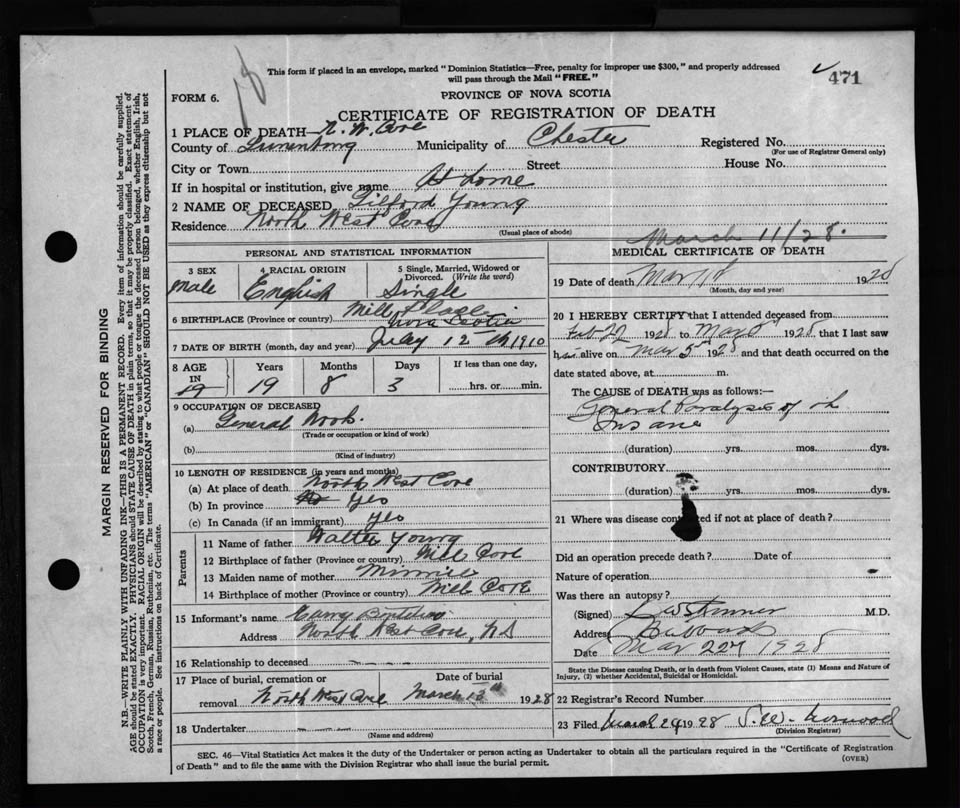 This form if placed in an envelope, marked "Dominion Statistics—Free, penalty for improper use $300," and properly addressed
will pass through the Mail "FREE."
471
FORM 6.
PROVINCE OF NOVA SCOTIA
CERTIFICATE OF REGISTRATION OF DEATH
1 PLACE OF DEATH— N. W. Cove
County of Lunenburg Municipality of Chester Registered No.
(For use of Registrar General only)
City or Town Street House No.
If in hospital or institution, give name At Home
2 NAME OF DECEASED Gilford Young
Residence North West Cove
(Usual place of abode)
March 11/28.
PERSONAL AND STATISTICAL INFORMATION
3 SEX 4 RACIAL ORIGIN 5 Single, Married, Widowed or
Divorced. (Write the word)
male English Single
6 BIRTHPLACE (Province or country) Mill Place
Nova Scotia
7 DATE OF BIRTH (month, day and year) July 12th 1910
8 AGE Years Months Days If less than one day,
IN
19 19 8 3 hrs. or min.
9 OCCUPATION OF DECEASED
(a) General Work.
(Trade or occupation or kind of work)
(b)
(Kind of industry)
10 LENGTH OF RESIDENCE (in years and months)
(a) At place of death North West Cove
(b) In province Yes
(c) In Canada (if an immigrant) Yes
Parents
11 Name of father Walter Young
12 Birthplace of father (Province or country) Mill Cove
13 Maiden name of mother Minnie
14 Birthplace of mother (Province or country) Mill Cove
15 Informant's name
Address North West Cove, NS
16 Relationship to deceased
17 Place of burial, cremation or Date of burial
removal North West Cove March 13th 1928
18 Undertaker
(Name and address)
MEDICAL CERTIFICATE OF DEATH
19 Date of death 1928
(Month, day and year)
20 I HEREBY CERTIFY that I attended deceased from
Feb 1928 to Mar 1928 that I last saw
him alive on Mar 5th 1928 and that death occurred on the
date stated above, at m.
The CAUSE of DEATH was as follows:—
General Paralysis of the
Insane
(duration) yrs. mos. dys.
CONTRIBUTORY
(duration) yrs. mos. dys.
21 Where was disease contracted if not at place of death?
Did an operation precede death? Date of
Nature of operation
Was there an autopsy?
(Signed) M.D.
Address Hubbards
Date Mar 22 1928
State the Disease causing Death, or in death from Violent Causes, state (1) Means and Nature of
Injury, (2) whether Accidental, Suicidal or Homicidal.
22 Registrar's Record Number
23 Filed March 24 1928
(Division Registrar)
SEC. 46—Vital Statistics Act makes it the duty of the Undertaker or person acting as Undertaker to obtain all the particulars required in the "Certificate of Registration
of Death" and to file the same with the Division Registrar who shall issue the burial permit.
(OVER)
MARGIN RESERVED FOR BINDING
N.B.—WRITE PLAINLY WITH UNFADING INK—THIS IS A PERMANENT RECORD. Every item of information should be carefully supplied.
AGE should be stated EXACTLY. PHYSICIANS should STATE CAUSE OF DEATH in plain terms, that it may be properly classified. Exact statement of
OCCUPATION is very important. RACIAL ORIGIN will be described by stating to what people or tongue, the deceased person belonged, whether English, Irish,
Scotch, French, German, Russian, Ruthenian, etc. The terms "AMERICAN" or "CANADIAN" SHOULD NOT BE USED as they express citizenship but not
a race or people. See instructions on back of Certificate.